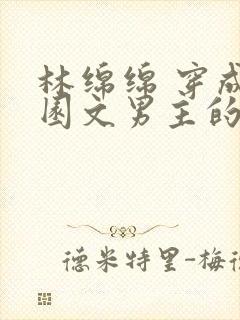 林绵绵 穿成
园文男主的
德米特里-梅德